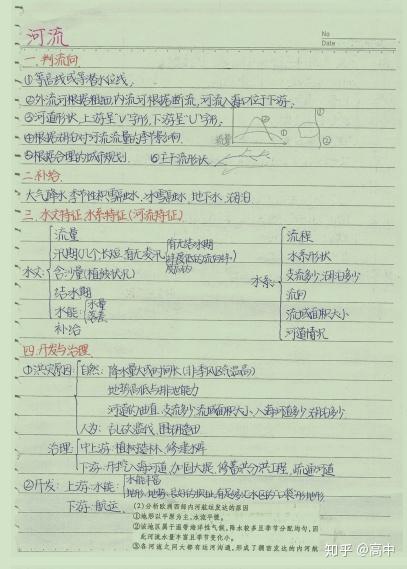 河流
No
Date
一.判流向
①等高线或等潜水位线.
②外流河根据粗细,内流河根据断流,河流入海口位于下游.
③河道形状,上游呈"V"字形,下游呈"U"字形.
④根据湖泊对河流流量的季节影响.
流量
①
②
⑤根据合理的城市规划. ⑥主干流形状.
二.补给.
大气降水.季节性积雪融水.冰雪融水.地下水.湖泊.
三.水文特征 水系特征(河流特征)
水文
流量
汛期(几个长短.有无凌汛
有无结冰期
含沙量(植被状况)
结冰期
水能
水量
落差
补给
水系
流程
水系形状
支流多少.湖泊多少
流向
流域面积大小
河道情况
四.开发与治理.
①洪灾原因
自然: 降水量大或时间长
地势高低与排泄能力
河道的曲直.支流多少.流域面积大小.入海河道多少.湖泊多少.
人为: 乱砍滥伐.围湖造田
治理
中上游:植树造林.修建水库
下游:开挖入海河道.加固大堤.修蓄洪分洪工程.疏通河道
②开发: 上游:水能
水能丰富
下游:航运
(2)分析欧洲西部内河航运发达的原因
①地形以平原为主,水流平缓。
②该地区属于温带海洋性气候,降水较多且季节分配均匀,因
此河流水量丰富且季节变化小。
③各河流之间大都有运河沟通,形成了稠密发达的内河航
知乎 @高中